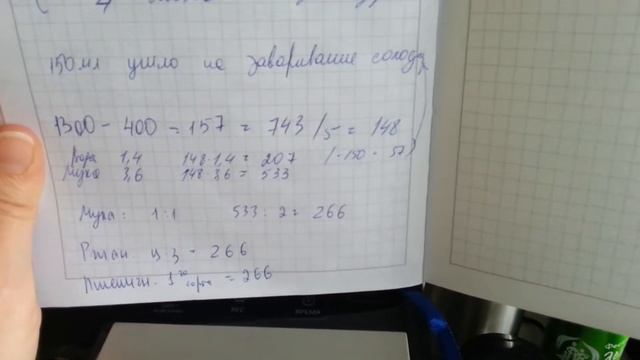 150 мл ушло на заваривание солода
1300 - 400 = 157 = 743 / 5 = 148
Вода 1,4 148·1,4 = 207 (-150 = 57)
Мука 3,6 148·3,6 = 533
Мука: 1:1 533 : 2 = 266
Ржан ц.з - 266
Пшеничн. 1го сорта = 266
ВРЕМЯ